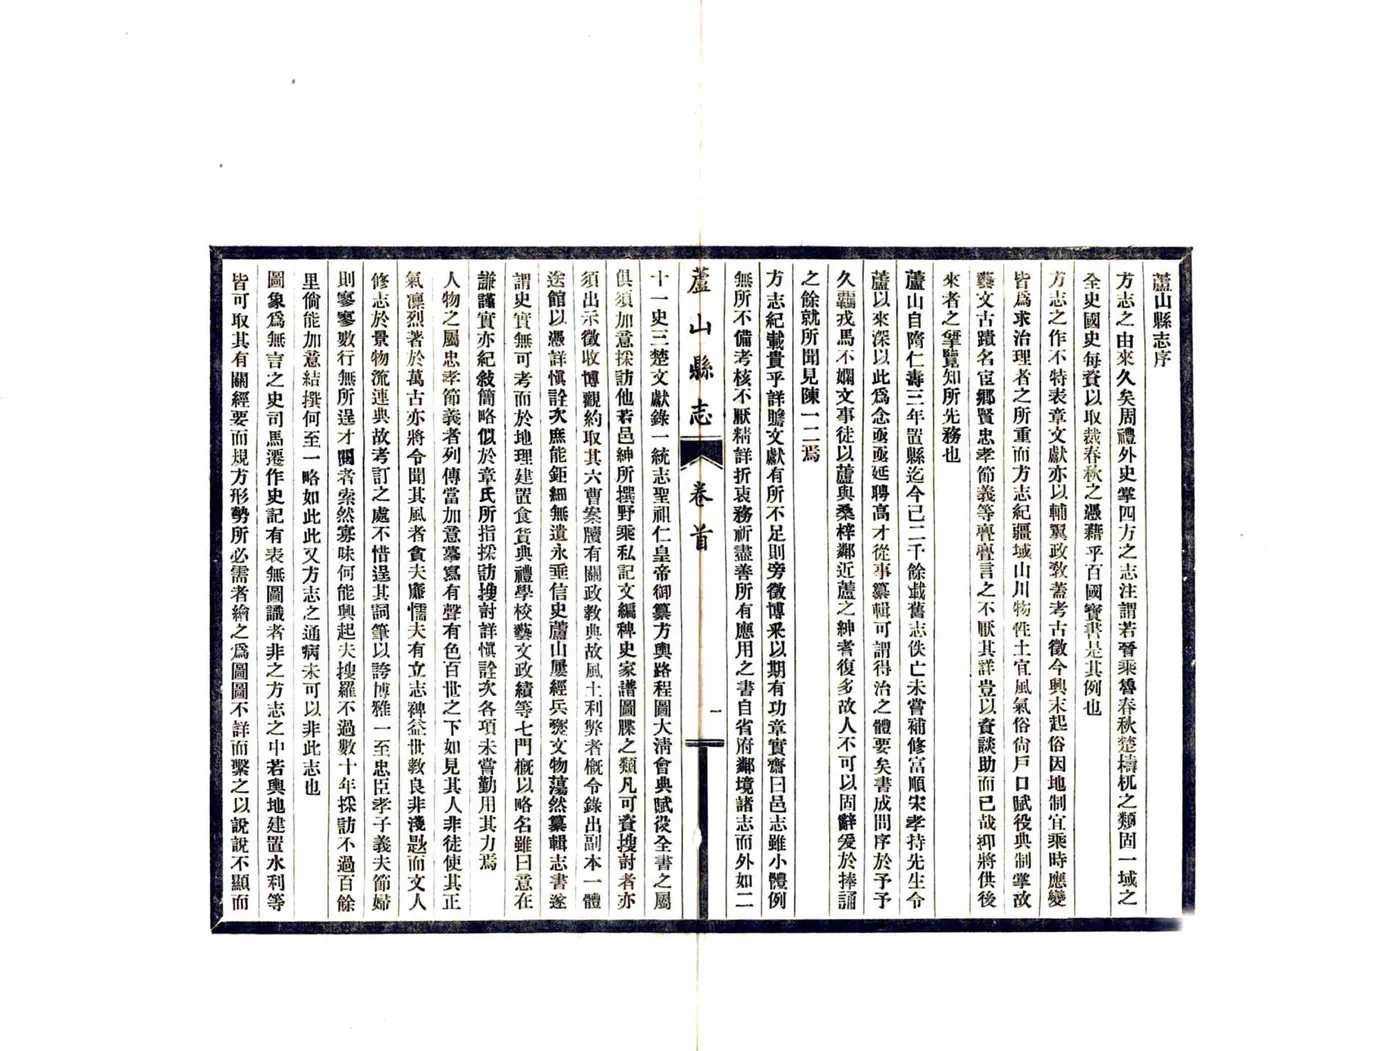 蘆山縣志序
方志之由來久矣周禮外史掌四方之志注謂若晉乘魯春秋楚檮杌之類固一域之
全史國史每資以取裁春秋之憑藉乎百國寶書是其例也
方志之作不特表章文獻亦以輔翼政敎蓄考古徵今興末起俗因地制宜乘時應變
皆爲求治理者之所重而方志紀疆域山川物性土宜風氣俗尙戶口賦役典制掌故
藝文古蹟名宦鄕賢忠孝節義等亹亹言之不厭其詳豈以資談助而已哉抑將供後
來者之肇覽知所先務也
蘆山自隋仁壽三年置縣迄今已二千餘載舊志佚亡未嘗補修富順宋孝持先生令
蘆以來深以此爲念亟亟延聘高才從事纂輯可謂得治之體要矣書成問序於予予
久羈戎馬不嫻文事徒以蘆與桑梓鄰近蘆之紳耆復多故人不可以固辭爰於捧誦
之餘就所聞見陳一二焉
方志紀載貴乎詳贍文獻有所不足則旁徵博釆以期有功章實齋曰邑志雖小體例
無所不備考核不厭精詳折衷務祈盡善所有應用之書自省府鄰境諸志而外如二
蘆山縣志 卷首 一
十一史三楚文獻錄一統志聖祖仁皇帝御纂方輿路程圖大淸會典賦役全書之屬
俱須加意採訪他若邑紳所撰野乘私記文編稗史家譜圖牒之類凡可資搜討者亦
須出示徵收博觀約取其六曹案牘有關政教典故風土利弊者槪令錄出副本一體
送館以憑詳愼詮次庶能鉅細無遺永垂信史蘆山屢經兵燹文物蕩然纂輯志書遂
謂史實無可考而於地理建置食貨典禮學校藝文政績等七門槪以略名雖曰意在
謙謹實亦紀敍簡略似於章氏所指採訪搜討詳愼詮次各項未嘗勤用其力焉
人物之屬忠孝節義者列傳當加意摹寫有聲有色百世之下如見其人非徒使其正
氣凜烈著於萬古亦將令聞其風者貪夫廉懦夫有立志稗益世敎良非淺尠而文人
修志於景物流連典故考訂之處不惜逞其詞筆以誇博雅一至忠臣孝子義夫節婦
則寥寥數行無所逞才閱者索然寡味何能興起夫搜羅不過數十年採訪不過百餘
里倘能加意結撰何至一略如此此又方志之通病未可以非此志也
圖象爲無言之史司馬遷作史記有表無圖識者非之方志之中若輿地建置水利等
皆可取其有關經要而規方形勢所必需者繪之爲圖圖不詳而繫之以說說不顯而